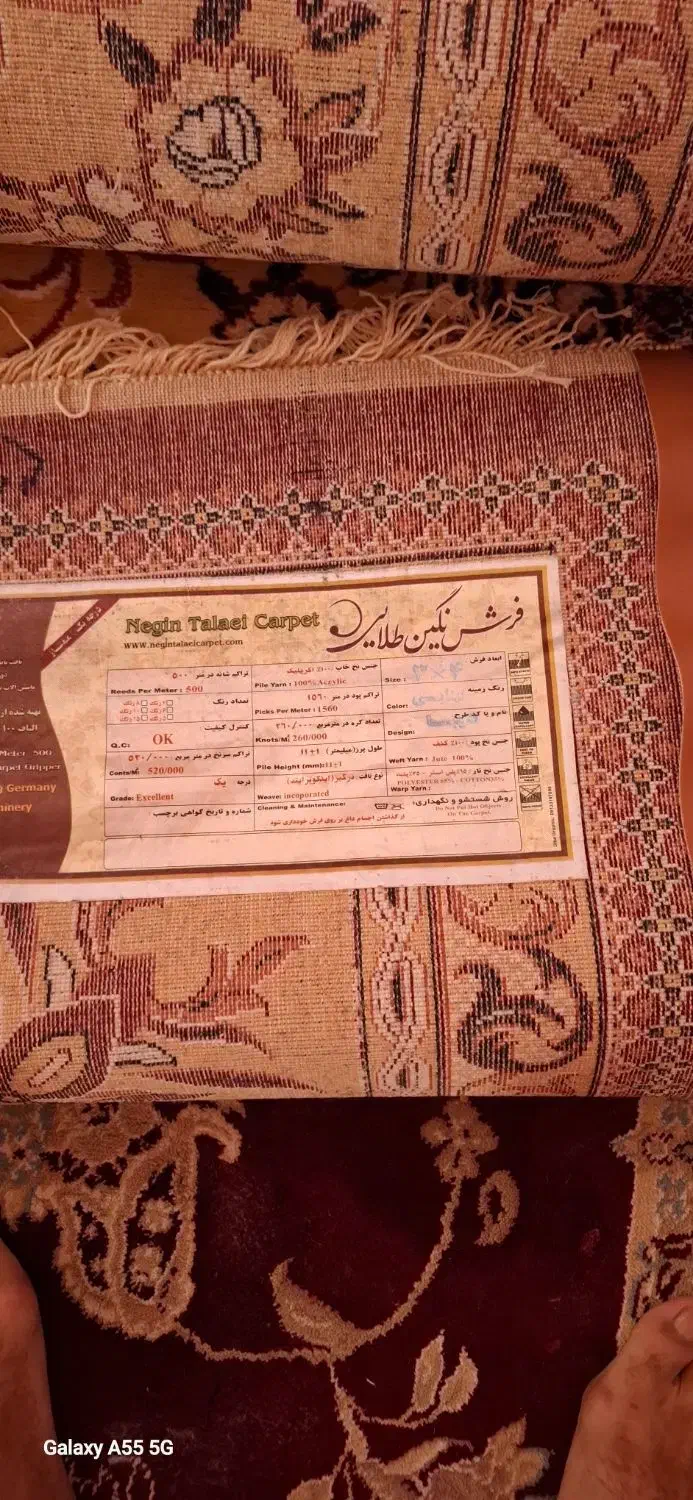 فرش نگین طلایی
Negin Talaei Carpet
www.negintalaeicarpet.com
ابعاد فرش :
Size :
جنس نخ خاب : ۱۰۰٪ اکریلیک
Pile Yarn : 100% Acrylic
تراکم شانه در متر : ۵۰۰
Reeds Per Meter : 500
رنگ زمینه
Color:
تراکم پود در متر : ۱۵۶۰
Picks Per Meter : 1560
تعداد رنگ
نام و یا کد طرح
Design:
تعداد گره در مترمربع : ۲۶۰/۰۰۰
Knots/M²: 260/000
کنترل کیفیت
Q.C: OK
جنس نخ پود : ۱۰۰٪ کنف
Weft Yarn : Jute 100%
طول پرز(میلیمتر) : ۱±۱۱
Pile Height (mm):11±1
تراکم سرنخ در متر مربع : ۵۲۰/۰۰۰
Conts/M²: 520/000
جنس نخ تار :
Warp Yarn :
نوع بافت :
Weave: incoporated
درجه یک
Grade: Excellent
روش شستشو و نگهداری :
Do Not Put Hot Objects
On The Carpet.
Cleaning & Maintenance:
از گذاشتن اجسام داغ بر روی فرش خودداری شود
شماره و تاریخ گواهی برچسب
تهیه شده از
Meter 500
Carpet Gripper
Germany
Galaxy A55 5G